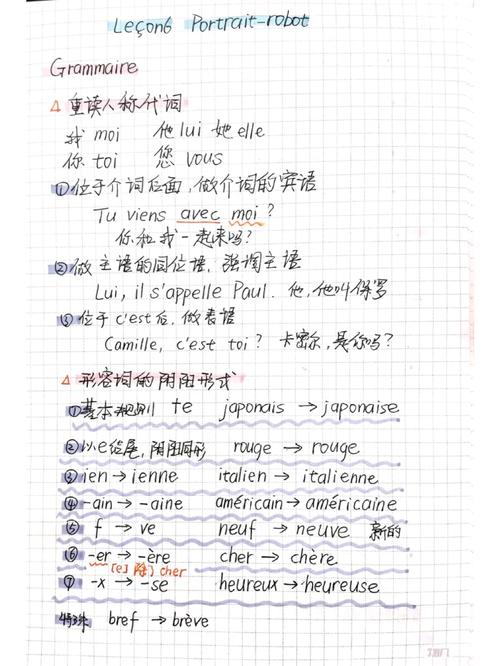 Leçon6 Portrait-robot
Grammaire
△ 重读人称代词
我 moi 他 lui 她 elle
你 toi 您 vous
①位于介词后面,做介词的宾语
Tu viens avec moi ?
你和我一起来吗?
②做主语的同位语,强调主语
Lui, il s'appelle Paul. 他,他叫保罗
③位于c'est后,做表语
Camille, c'est toi ? 卡密尔,是你吗?
△ 形容词的阴阳形式
①基本规则 +e japonais → japonaise
②以e结尾,阴阳同形 rouge → rouge
③ien → ienne italien → italienne
④-ain → -aine américain → américaine
⑤ f → ve neuf → neuve 新的
⑥ -er → -ère cher → chère
[e]除) cher
⑦ -x → -se heureux → heureuse
特殊 bref → brève